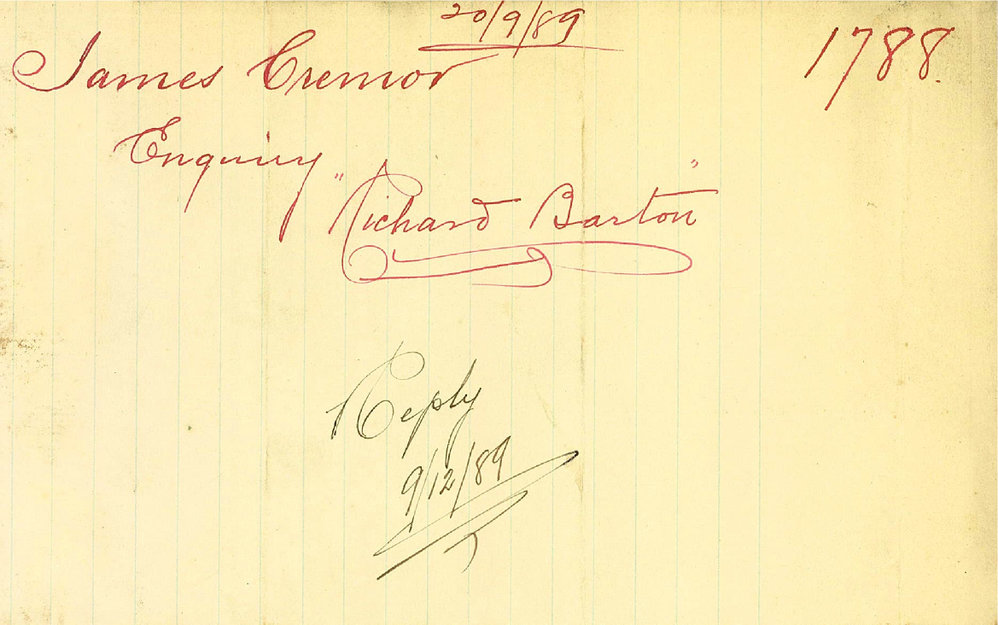 20/9/89
James Cremor 1788.
Enquiry
"Richard Barton"
Reply
9/12/89